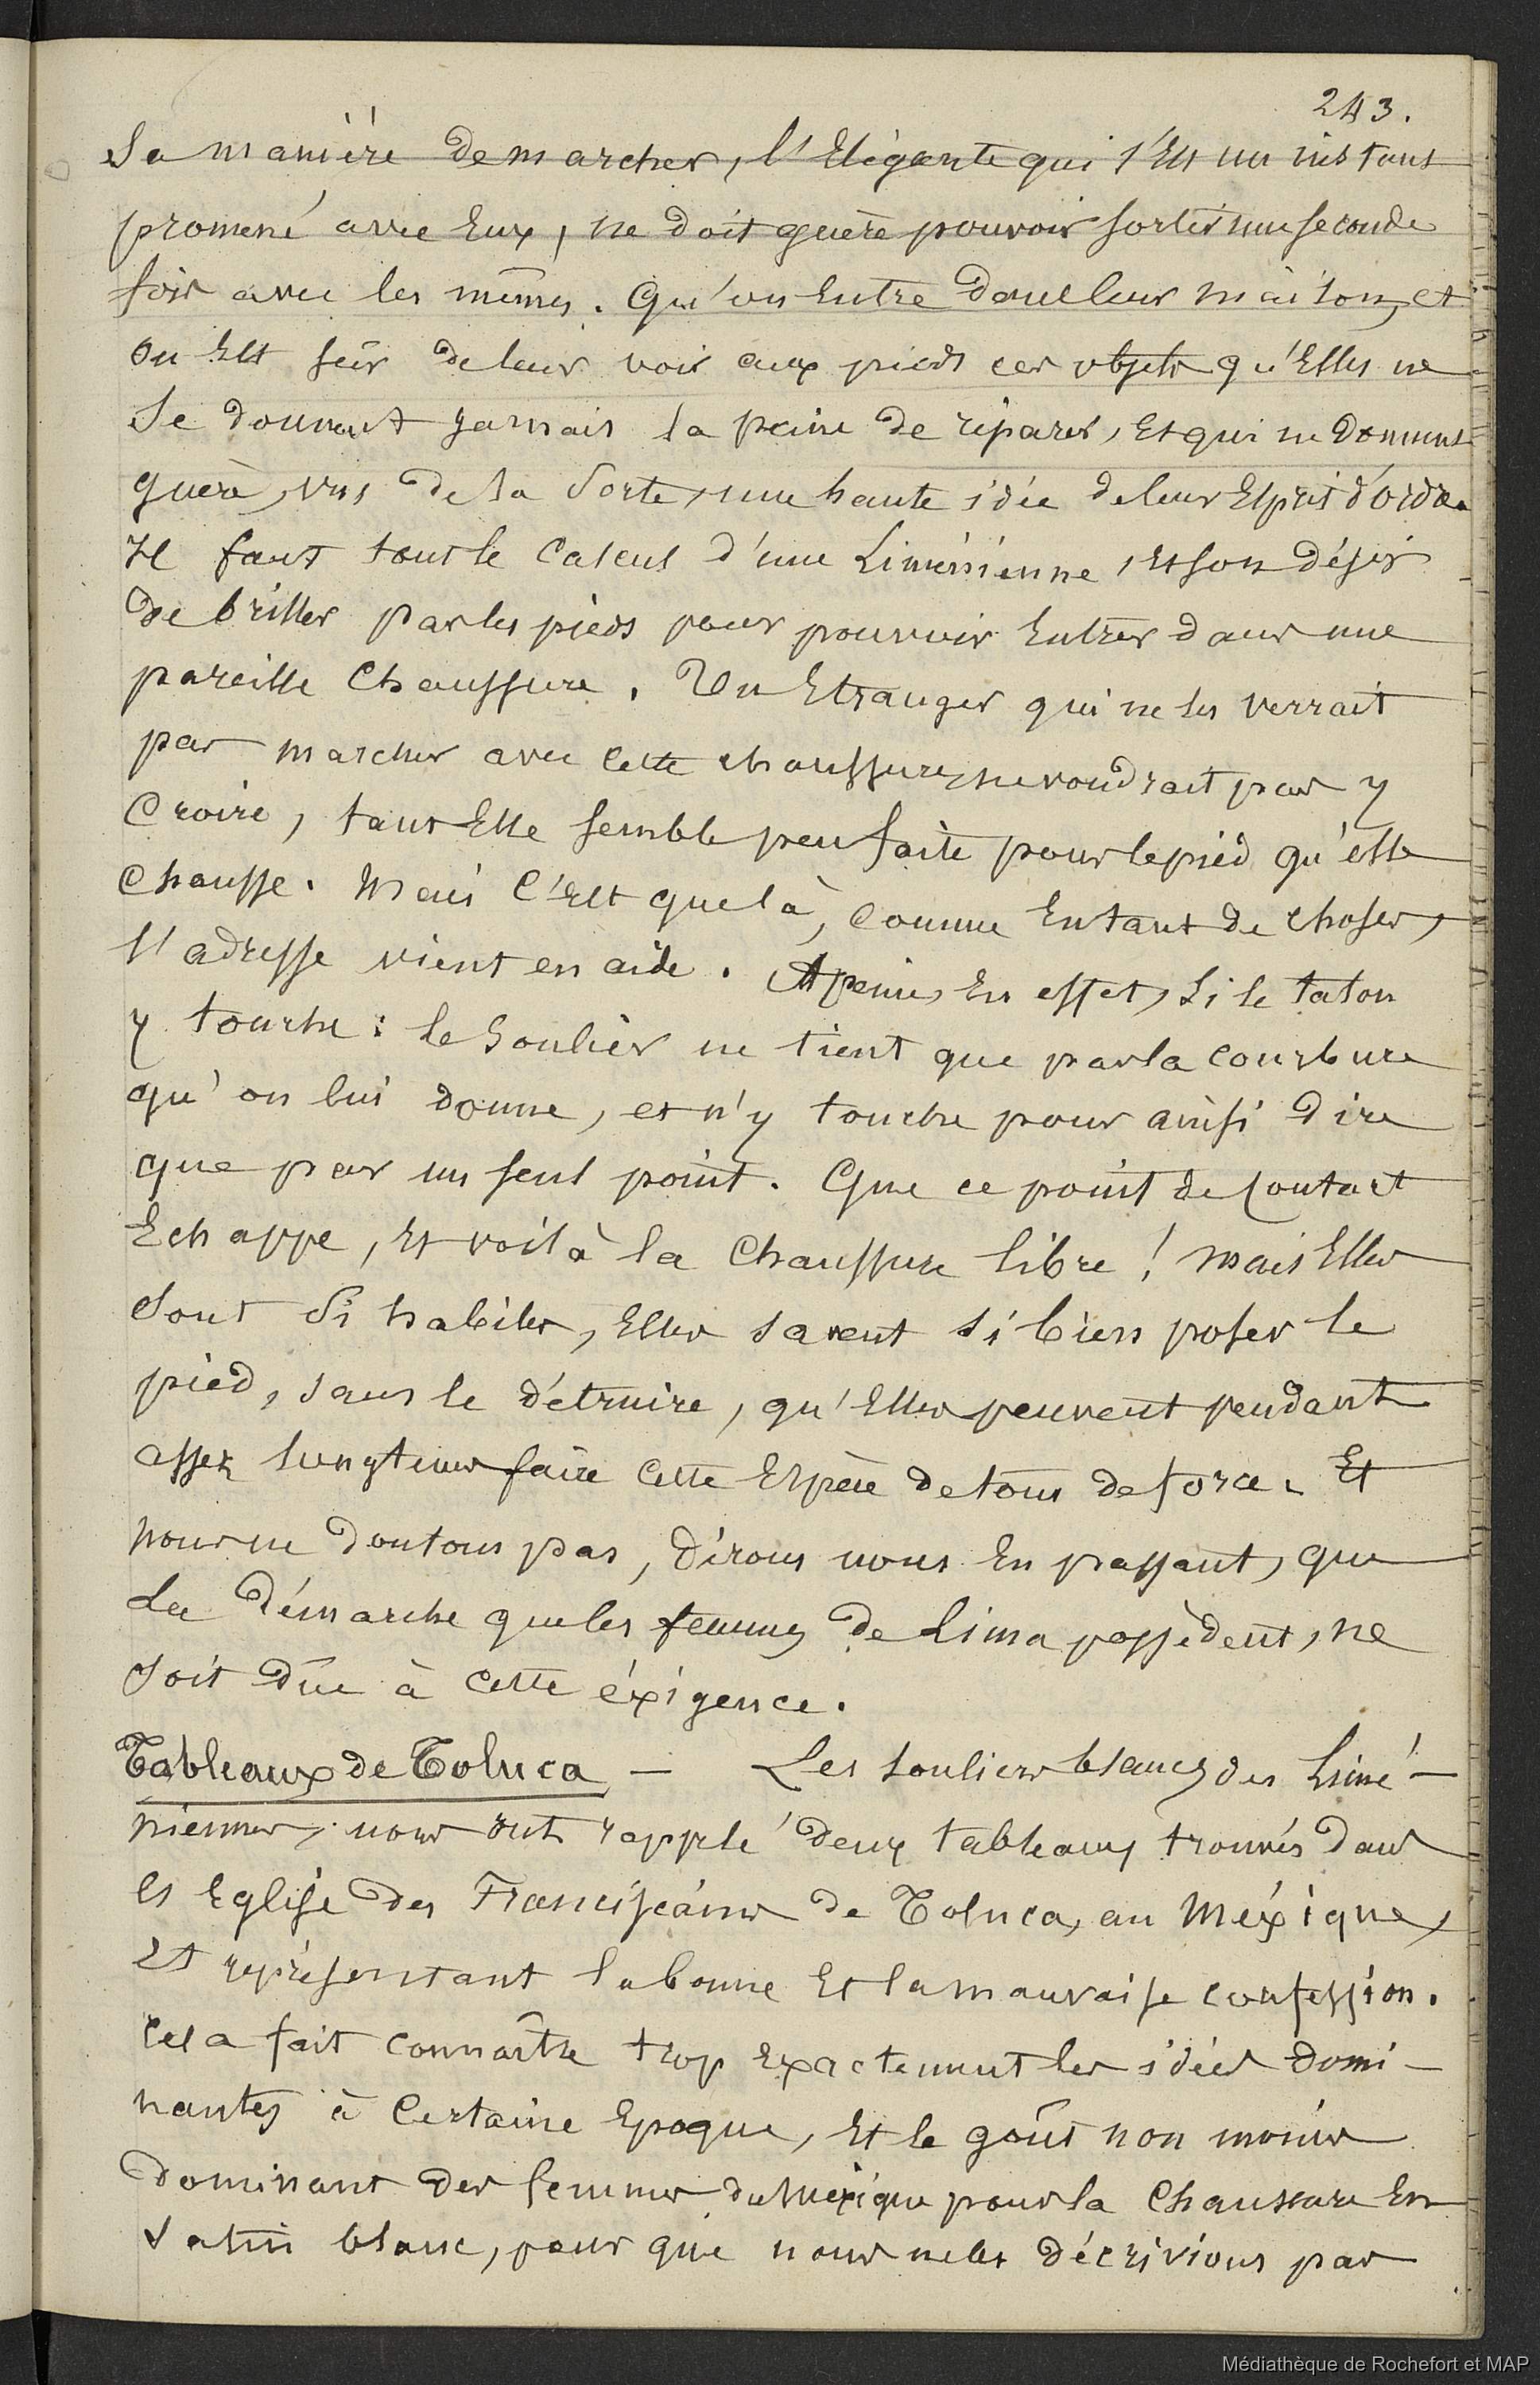 243.
Sa manière de marcher, l'Elégante qui s'Est un instant
promené avec Eux, ne doit guère pouvoir sortir une seconde
fois avec les mêmes. Qu'on Entre dans leur maison, et
on Est sûr de leur voir aux pieds ces objets qu'Elles ne
se donnent jamais la peine de réparer, Et qui ne donnent
guère, vus de la sorte, une haute idée de leur Esprit d'ordre.
Il faut tout le calcul d'une Liménienne, Et son désir
de briller par les pieds pour pouvoir Entrer dans une
pareille chaussure. Un Etranger qui ne les verrait
pas marcher avec cette chaussure, ne voudrait pas y
croire, tant Elle semble peu faite pour le pied qu'elle
chausse. Mais c'Est que là, comme En tant de choses,
l'adresse vient en aide. A peine, En effet, si le talon
y touche : le soulier ne tient que par la courbure
qu'on lui donne, et n'y touche pour ainsi dire
que par un seul point. Que ce point de contact
Echappe, Et voilà la chaussure libre ! Mais Elles
sont si habiles, Elles savent si bien poser le
pied, sans le détruire, qu'Elles peuvent pendant
assez longtems faire cette Espèce de tour de force. Et
nous ne doutons pas, dirons nous En passant, que
la démarche que les femmes de Lima possèdent, ne
soit dûe à cette éxigence.
Tableaux de Toluca — Les souliers blancs des Limé-
niennes, nous ont rappelé deux tableaux trouvés dans
l'Eglise des Franciscains de Toluca, au Méxique,
Et représentant la bonne Et la mauvaise confession.
Cela fait connaître trop Exactement les idées domi-
nantes à certaine Epoque, Et le goût non moins
dominant des femmes du Méxique pour la chaussure En
satin blanc, pour que nous ne les décrivions pas
Médiathèque de Rochefort et MAP